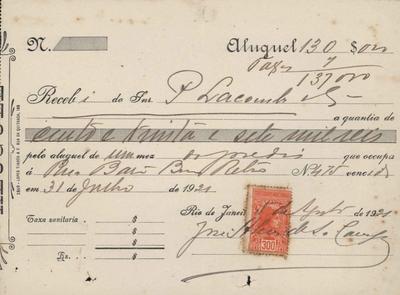 N.
Aluguel 130 $000
Taxa 7
137000
Recebi do Snr P. Lacomb
a quantia de
cento e trinta e sete mil reis
pelo aluguel de um mez do predio que occupa
á Rua Barão Bom Retiro N. 475 vencido
em 31 Julho de 1921
Taxa sanitaria
Rs.
Rio de Janeiro, Agosto de 1921
300
José